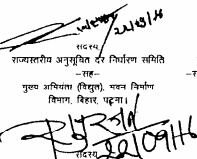 22/09/16
सदस्य
राज्यस्तरीय अनुसूचित दर निर्धारण समिति
-सह-
-र
मुख्य अभियंता (विद्युत), भवन निर्माण
विभाग, बिहार, पटना।
22/09/16
सदस्य